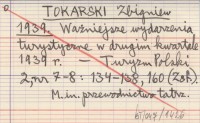 TOKARSKI Zbigniew
1939. Ważniejsze wydarzenia
turystyczne w drugim kwartale
1939 r. — Turyzm Polski
2, nr 7-8 : 134-138, 160 (Zof.).
M. in. przewodnictwo tatrz.